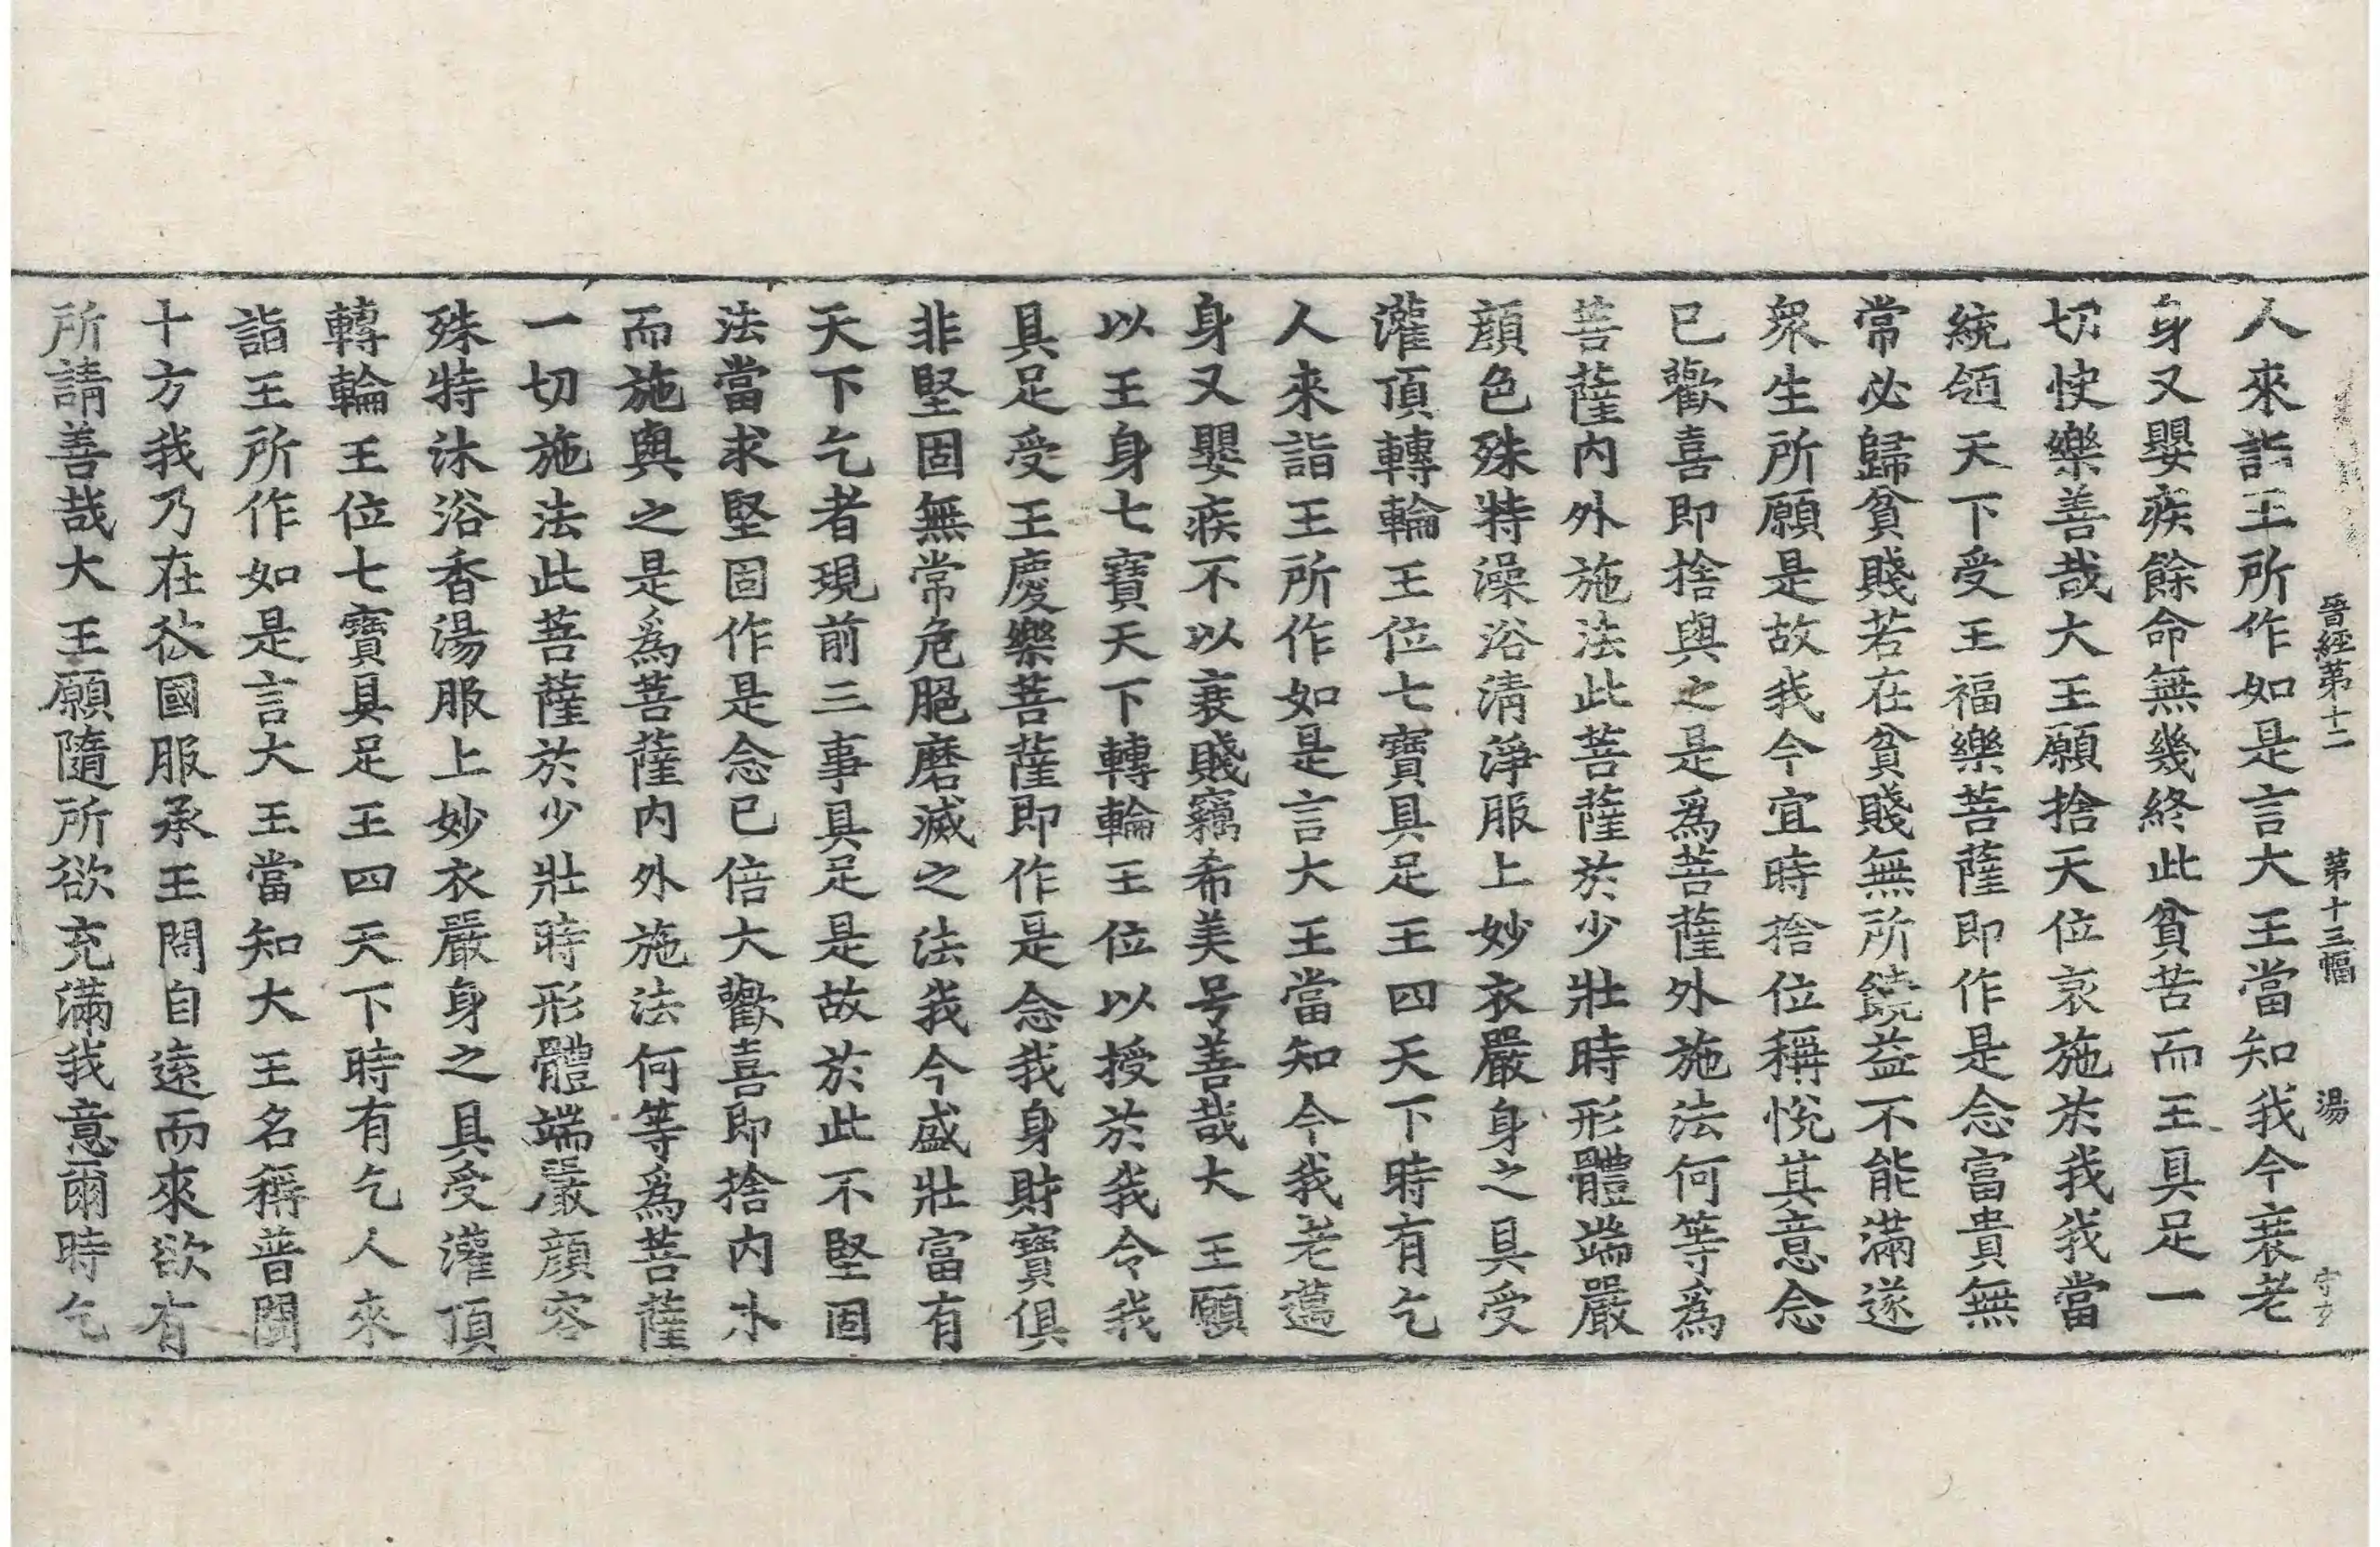 晉經第十二 第十三幅 湯 守力
人來詣王所作如是言大王當知我今衰老
身又嬰疾餘命無幾終此貧苦而王具足一
切快樂善哉大王願捨天位哀施於我我當
統領天下受王福樂菩薩即作是念富貴無
常必歸貧賤若在貧賤無所饒益不能滿遂
衆生所願是故我今宜時捨位稱悅其意念
已歡喜即捨與之是爲菩薩外施法何等爲
菩薩內外施法此菩薩於少壯時形體端嚴
顏色殊特澡浴清淨服上妙衣嚴身之具受
灌頂轉輪王位七寶具足王四天下時有乞
人來詣王所作如是言大王當知今我老邁
身又嬰疾不以衰賤竊希美号善哉大王願
以王身七寶天下轉輪王位以授於我令我
具足受王慶樂菩薩即作是念我身財寶俱
非堅固無常危脆磨滅之法我今盛壯富有
天下乞者現前三事具足是故於此不堅固
法當求堅固作是念已倍大歡喜即捨內外
而施與之是爲菩薩內外施法何等爲菩薩
一切施法此菩薩於少壯時形體端嚴顏容
殊特沐浴香湯服上妙衣嚴身之具受灌頂
轉輪王位七寶具足王四天下時有乞人來
詣王所作如是言大王當知大王名稱普聞
十方我乃在於彼國服承王問自遠而來欲有
所請善哉大王願隨所欲充滿我意爾時乞